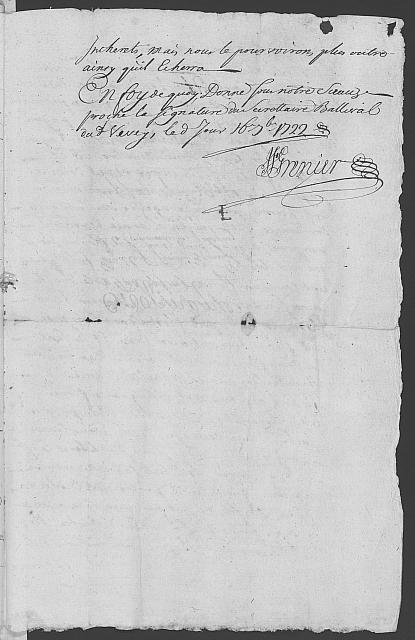 Incherets, mais nous le pourvoiron, plus outre
ainsy qu'il Echerra
En foy de quoy, Donné sous notre Sceau,
proche la signature du Secrettaire Ballival
aud. Vevey, le d. Jour 16e 7bre 1722